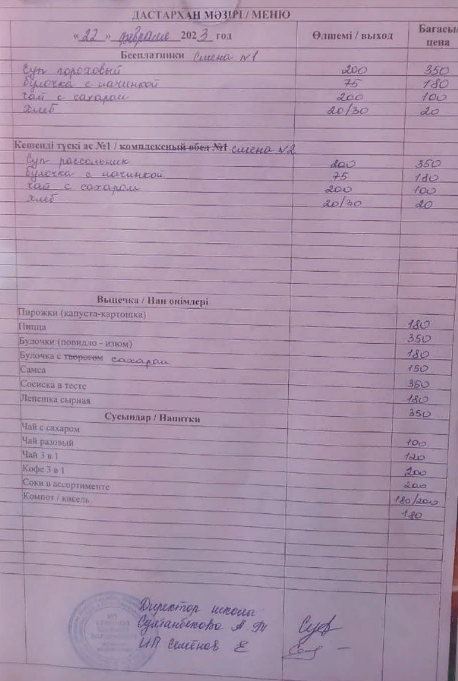 ДАСТАРХАН МӘЗІРІ / МЕНЮ
« 22 » февраля 2023 год Өлшемі / выход Бағасы/ цена
Бесплатники смена №1
Суп гороховый 200 350
булочка с начинкой 75 180
чай с сахаром 200 100
хлеб 20/30 20
Кешенді түскі ас №1 / комплексный обед №1 смена №2
Суп рассольник 200 350
булочка с начинкой 75 180
чай с сахаром 200 100
хлеб 20/30 20
Выпечка / Нан өнімдері
Пирожки (капуста-картошка) 180
Пицца 350
Булочки (повидло - изюм) 180
Булочка с творогом сахаром 150
Самса 350
Сосиска в тесте 180
Лепешка сырная 350
Сусындар / Напитки
Чай с сахаром 100
Чай разовый 120
Чай 3 в 1 200
Кофе 3 в 1 200
Соки в ассортименте 180/200
Компот / кисель 180
Директор школы
Султанбекова А
ИП Семёнов Е